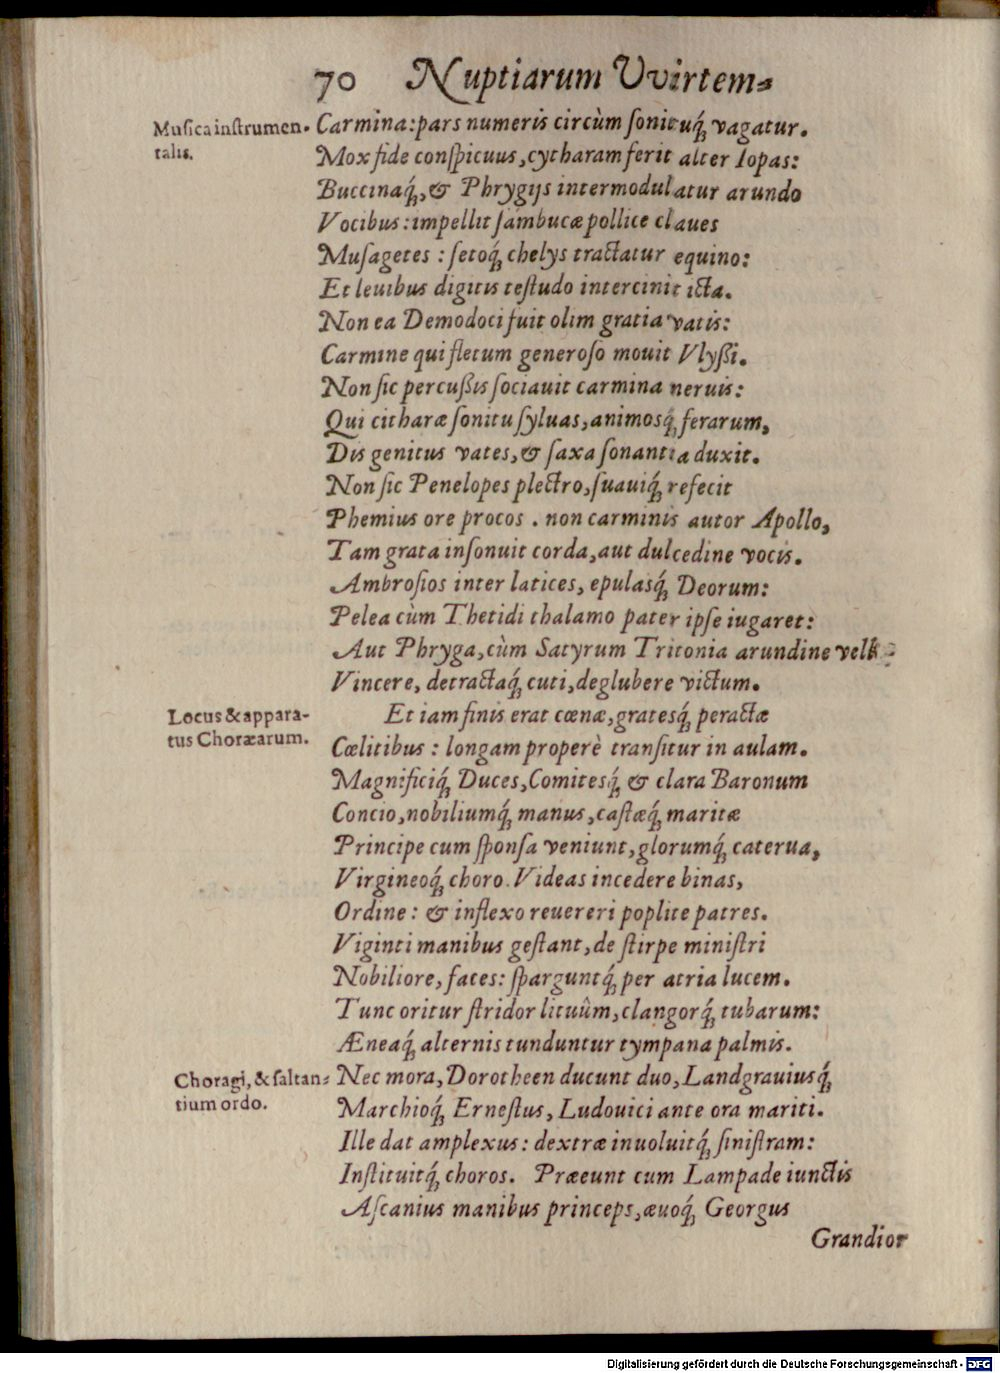 70 Nuptiarum Vvirtem-
Musica instrumen-
talis.
Carmina: pars numeris circùm sonituq́; vagatur.
Mox fide conspicuus, cytharam ferit alter Iopas:
Buccinaq́;, & Phrygijs intermodulatur arundo
Vocibus: impellit sambucæ pollice claues
Musagetes: setoq́; chelys tractatur equino:
Et leuibus digitis testudo intercinit icta.
Non ea Demodoci fuit olim gratia vatis:
Carmine qui fletum generoso mouit Vlyßi.
Non sic percußis sociauit carmina neruis:
Qui citharæ sonitu syluas, animosq́; ferarum,
Dis genitus vates, & saxa sonantia duxit.
Non sic Penelopes plectro, suauiq́; refecit
Phemius ore procos. non carminis autor Apollo,
Tam grata insonuit corda, aut dulcedine vocis.
Ambrosios inter latices, epulasq́; Deorum:
Pelea cùm Thetidi thalamo pater ipse iugaret:
Aut Phryga, cùm Satyrum Tritonia arundine vellet
Vincere, detractaq́; cuti, deglubere victum.
Locus & appara-
tus Choræarum.
Et iam finis erat cœnæ, gratesq́; peractæ
Cœlitibus: longam properè transitur in aulam.
Magnificiq́; Duces, Comitesq́; & clara Baronum
Concio, nobiliumq́; manus, castæq́; maritæ
Principe cum sponsa veniunt, glorumq́; caterua,
Virgineoq́; choro. Videas incedere binas,
Ordine: & inflexo reuereri poplite patres.
Viginti manibus gestant, de stirpe ministri
Nobiliore, faces: sparguntq́; per atria lucem.
Tunc oritur stridor lituûm, clangorq́; tubarum:
Æneaq́; alternis tunduntur tympana palmis.
Choragi, & saltan-
tium ordo.
Nec mora, Dorotheen ducunt duo, Landgrauiusq́;
Marchioq́; Ernestus, Ludouici ante ora mariti.
Ille dat amplexus: dextræ inuoluitq́; sinistram:
Instituitq́; choros. Præeunt cum Lampade iunctis
Ascanius manibus princeps, æuoq́; Georgus
Grandior
Digitalisierung gefördert durch die Deutsche Forschungsgemeinschaft - DFG